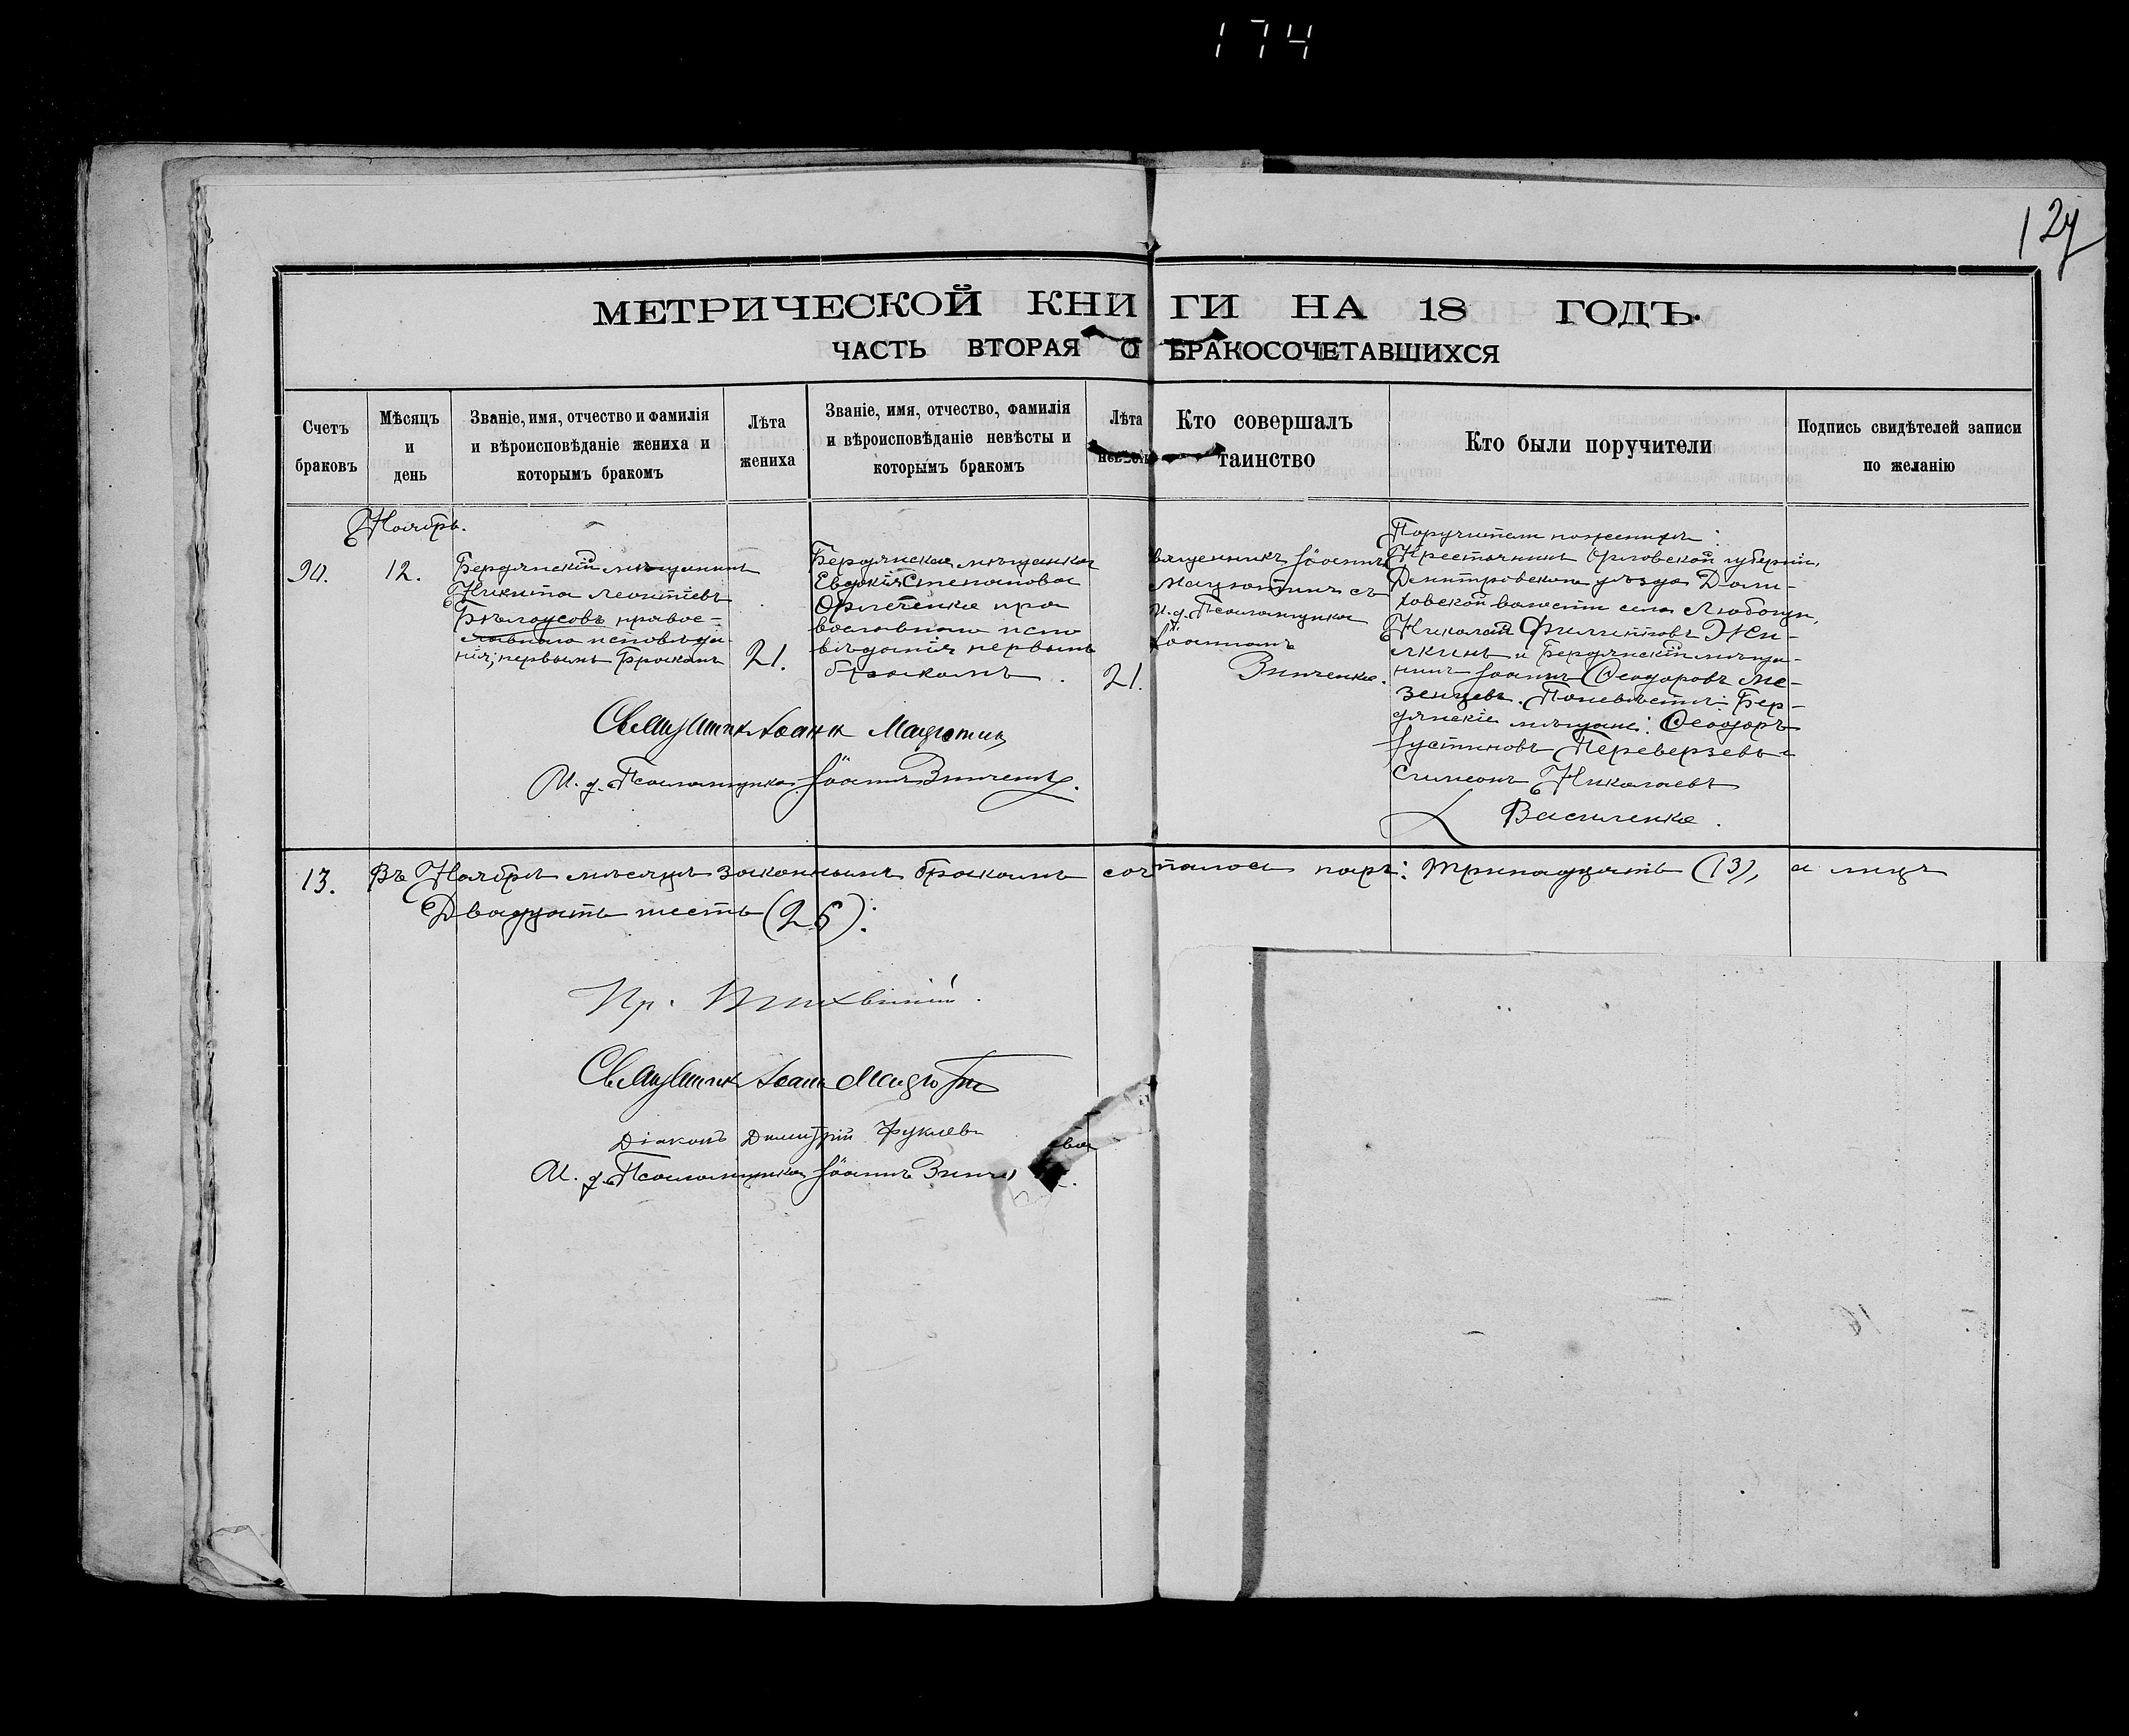 174
127
МЕТРИЧЕСКОЙ КНИГИ НА 18 ГОДЪ.
ЧАСТЬ ВТОРАЯ О БРАКОСОЧЕТАВШИХСЯ
Счетъ браковъ
Мѣсяцъ и день
Званіе, имя, отчество и фамилія и вѣроисповѣданіе жениха и которымъ бракомъ
Лѣта жениха
Званіе, имя, отчество, фамилія и вѣроисповѣданіе невѣсты и которымъ бракомъ
Лѣта невѣсты
Кто совершалъ таинство
Кто были поручители
Подпись свидѣтелей записи по желанію
Ноябрь.
90.
12.
Бердянскій мѣщанинъ
Никита Леонтіевъ
Бѣлоусовъ правос-
лавнаго исповѣда-
нія, первымъ бракомъ
21.
Бердянская мѣщанка
Евдокія Степановна
православнаго испо
вѣданія первымъ
бракомъ.
21.
Священникъ Іоаннъ
Мацютинъ съ
и. д. Псаломщика
Іоанномъ
Зинченко.
Поручители по женихѣ:
Крестьянинъ Орловской губерніи,
Дмитровскаго уѣзда Доли-
ховской волости села
Николай Филиповъ Жи-
лкинъ и Бердянскій мѣща-
нинъ Іоаннъ Ѳеодоровъ Ме-
зенцевъ. По невѣстѣ: Бер-
дянскіе мѣщане: Ѳеодоръ
Іустиновъ Переверзевъ и
Симеонъ Николаевъ
Василенко.
Священник Иоанн Мацютин
И. д. Псаломщика Іоаннъ Зинченко.
13. Въ Ноябрѣ мѣсяцѣ законнымъ бракомъ сочталось паръ: Тринадцать (13), а лицъ
Двадцать шесть (26):
Пр. Тихвинскій.
Священник Иоанн Мацютин
Діаконъ Димитрій
И. д. Псаломщика Іоаннъ